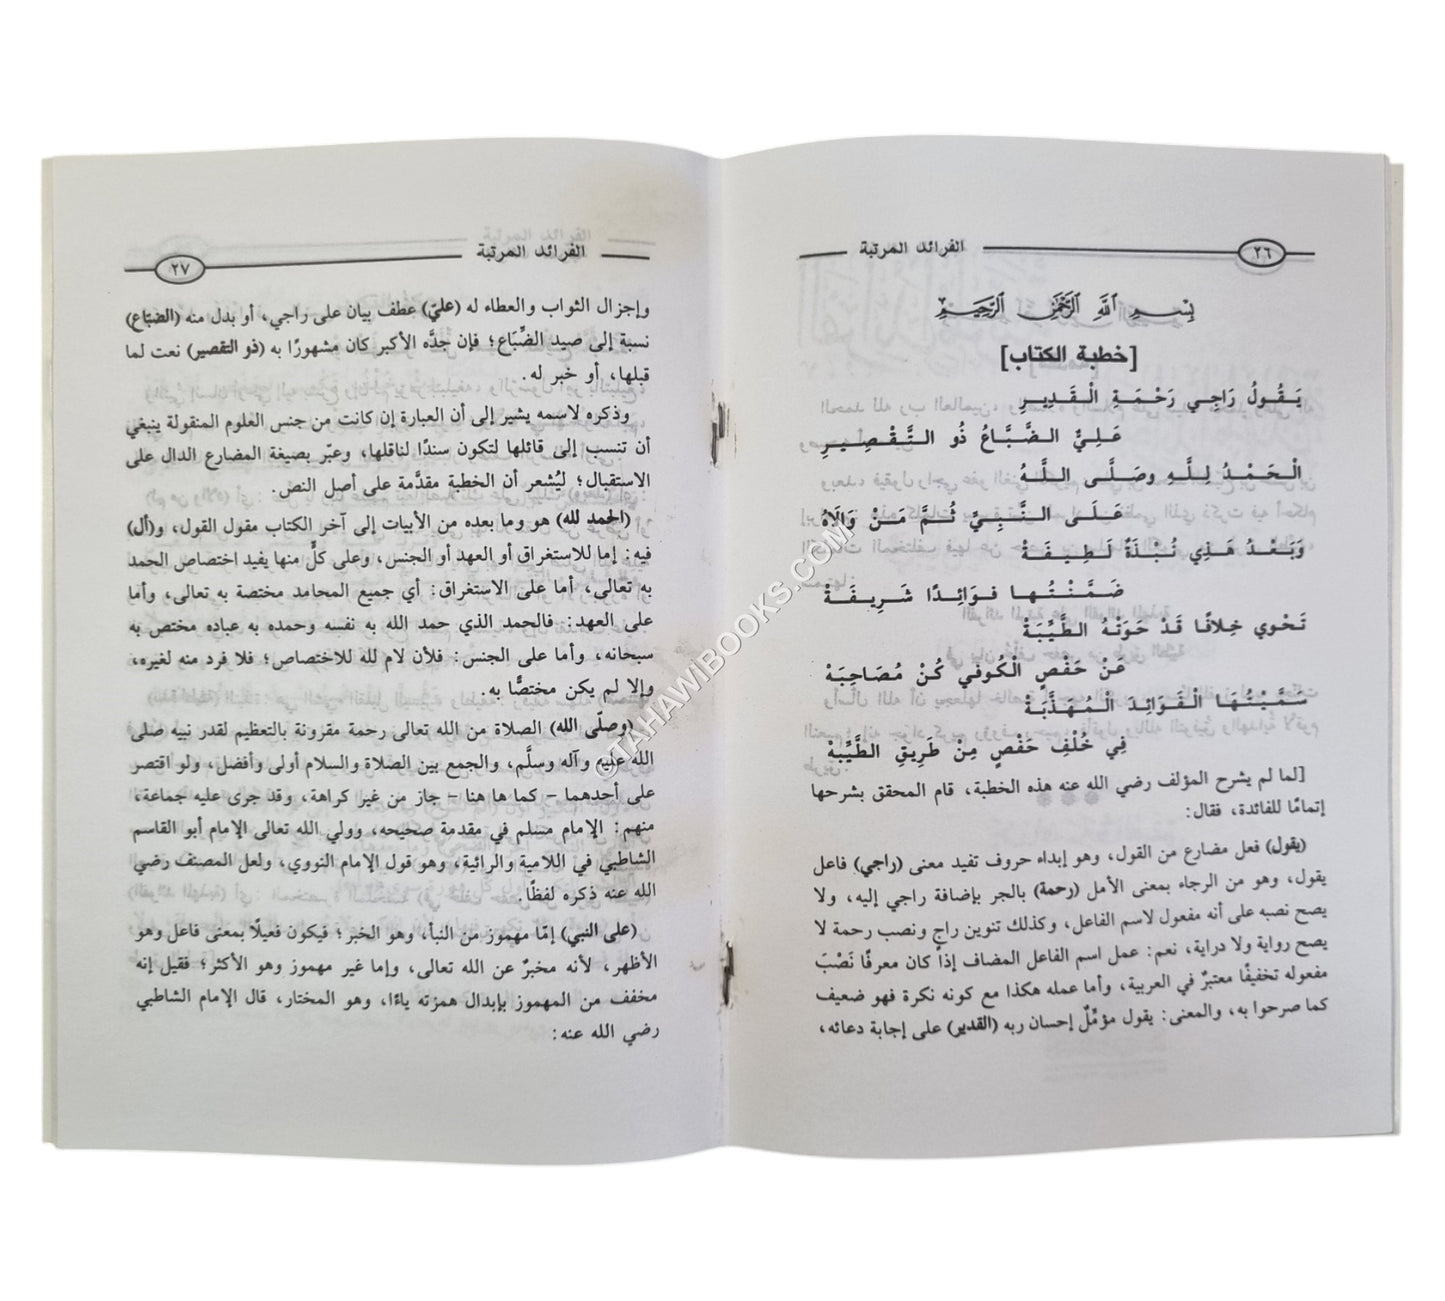 ٢٦
الفرائد المرتبة
بِسْمِ اللَّهِ الرَّحْمَنِ الرَّحِيمِ
[خطبة الكتاب]
يَـقُولُ رَاجِي رَحْمَةِ الْقَدِيرِ
عَلِيٌّ الضَّبَّاعُ ذُو التَّقْصِيرِ
الْحَمْدُ لِلَّهِ وصَلَّى اللَّهُ
عَلَى النَّبِيِّ ثُمَّ مَنْ وَالَاهُ
وَبَعْدُ هَذِي نُبْذَةٌ لَطِيفَةْ
ضَمَّنْتُها فوَائِدًا شَرِيفَةْ
تَحْوي خِلافًا قَدْ حَوَتْهُ الطَّيِّبَةْ
عَنْ حَفْصٍ الْكُوفي كُنْ مُصَاحِبَهْ
سَمَّيْتُهَا الْفَوَائِدَ الْمُهَذَّبَةْ
فِي خُلْفِ حَفْصٍ مِنْ طَرِيقِ الطَّيِّبهْ
[لما لم يشرح المؤلف رضي الله عنه هذه الخطبة، قام المحقق بشرحها
إتمامًا للفائدة، فقال:
(يقول) فعل مضارع من القول، وهو إبداء حروف تفيد معنى (راجي) فاعل
يقول، وهو من الرجاء بمعنى الأمل (رحمة) بالجر بإضافة راجي إليه، ولا
يصح نصبه على أنه مفعول لاسم الفاعل، وكذلك تنوين راج ونصب رحمة لا
يصح رواية ولا دراية، نعم: عمل اسم الفاعل المضاف إذا كان معرفًا نَصْبَ
مفعوله تخفيفًا معتبرٌ في العربية، وأما عمله هكذا مع كونه نكرة فهو ضعيف
كما صرحوا به، والمعنى: يقول مؤمِّلٌ إحسان ربه (القدير) على إجابة دعائه،
الفرائد المرتبة
٢٧
وإجزال الثواب والعطاء له (عليّ) عطف بيان على راجي، أو بدل منه (الضبّاع)
نسبة إلى صيد الضِّبَاع؛ فإن جدَّه الأكبر كان مشهورًا به (ذو التقصير) نعت لما
قبلها، أو خبر له.
وذكره لاسمه يشير إلى أن العبارة إن كانت من جنس العلوم المنقولة ينبغي
أن تنسب إلى قائلها لتكون سندًا لناقلها، وعبّر بصيغة المضارع الدال على
الاستقبال؛ ليُشعر أن الخطبة مقدَّمة على أصل النص.
(الحمد لله) هو وما بعده من الأبيات إلى آخر الكتاب مقول القول، و(أل)
فيه: إما للاستغراق أو العهد أو الجنس، وعلى كلٍّ منها يفيد اختصاص الحمد
به تعالى، أما على الاستغراق: أي جميع المحامد مختصة به تعالى، وأما
على العهد: فالحمد الذي حمد الله به نفسه وحمده به عباده مختص به
سبحانه، وأما على الجنس: فلأن لام لله للاختصاص؛ فلا فرد منه لغيره،
وإلا لم يكن مختصًّا به.
(وصلّى الله) الصلاة من الله تعالى رحمة مقرونة بالتعظيم لقدر نبيه صلى
الله عليه وآله وسلَّم، والجمع بين الصلاة والسلام أولى وأفضل، ولو اقتصر
على أحدهما – كما ها هنا – جاز من غير كراهة، وقد جرى عليه جماعة،
منهم: الإمام مسلم في مقدمة صحيحه، وولي الله تعالى الإمام أبو القاسم
الشاطبي في اللامية والرائية، وهو قول الإمام النووي، ولعل المصنف رضي
الله عنه ذكره لفظًا.
(على النبي) إمّا مهموز من النبأ، وهو الخبر؛ فيكون فعيلًا بمعنى فاعل وهو
الأظهر، لأنه مخبرٌ عن الله تعالى، وإما غير مهموز وهو الأكثر؛ فقيل إنه
مخفف من المهموز بإبدال همزته ياءًا، وهو المختار، قال الإمام الشاطبي
رضي الله عنه:
©TAHAWIBOOKS.COM